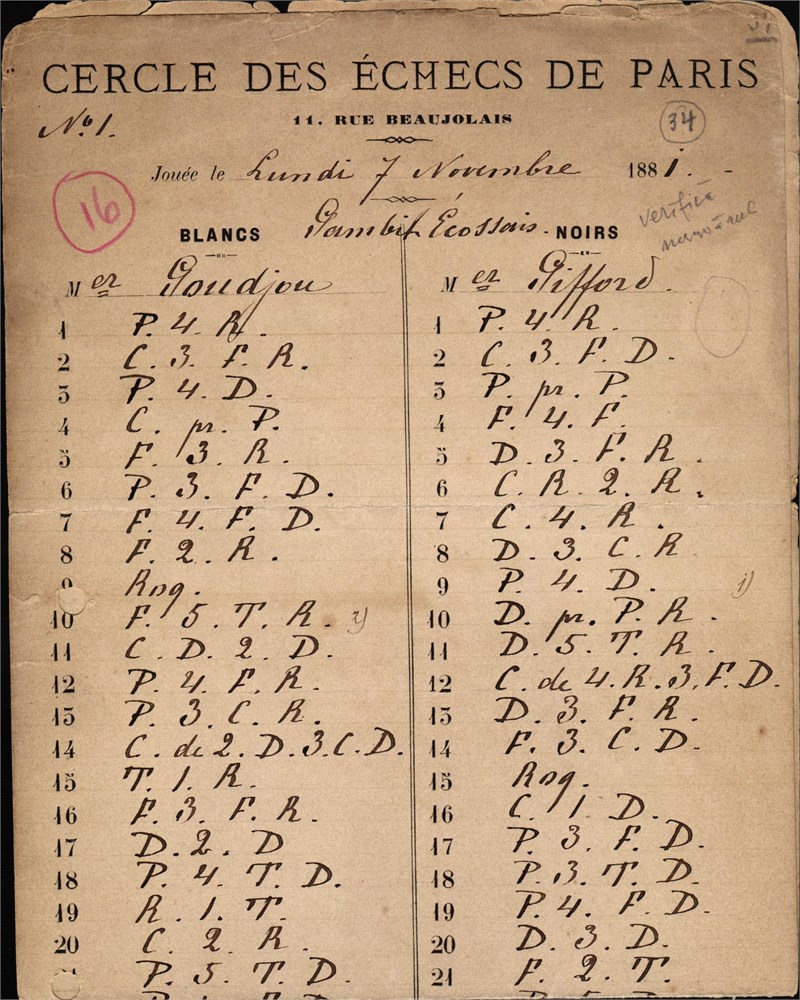 CERCLE DES ÉCHECS DE PARIS
11. RUE BEAUJOLAIS
Nº 1.
34
Jouée le Lundi 7 Novembre 1881. -
16
Gambit Écossais -
BLANCS NOIRS
verifica
Mer Goudjou Mer Gifford.
1 P. 4. R. 1 P. 4. R.
2 C. 3. F. R. 2 C. 3. F. D.
3 P. 4. D. 3 P. pr. P.
4 C. pr. P. 4 F. 4. F.
5 F. 3. R. 5 D. 3. F. R.
6 P. 3. F. D. 6 C. R. 2. R.
7 F. 4. F. D. 7 C. 4. R.
8 F. 2. R. 8 D. 3. C. R
9 Roq. 9 P. 4. D. 1)
10 F. 5. T. R. 2) 10 D. pr. P. R.
11 C. D. 2. D. 11 D. 5. T. R.
12 P. 4. F. R. 12 C. de 4. R. 3. F. D.
13 P. 3. C. R. 13 D. 3. F. R.
14 C. de 2. D. 3. C. D. 14 F. 3. C. D.
15 T. 1. R. 15 Roq.
16 F. 3. F. R. 16 C. 1. D.
17 D. 2. D 17 P. 3. F. D.
18 P. 4. T. D. 18 P. 3. T. D.
19 R. 1. T. 19 P. 4. F. D.
20 C. 2. R. 20 D. 3. D.
P. 5. T. D. 21 F. 2. T.